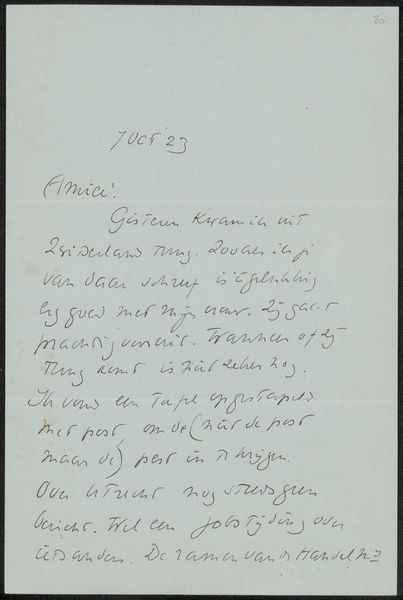 20
7 Oct '23
Amice!
Gisteren kwam ik uit
Zwitserland terug. Zooals ik je
van daar schreef is 't gelukkig
erg goed met mijn vrouw. Zij gaat
prachtig vooruit. Wanneer of zij
terug komt is niet zeker nog.
Ik vond een tafel opgestapeld
met post, om de (niet de post
maar de) pest in te krijgen.
Over Utrecht nog steeds geen
bericht. Wel een jobstijding over
iets anders. De ramen van de Handel Mij